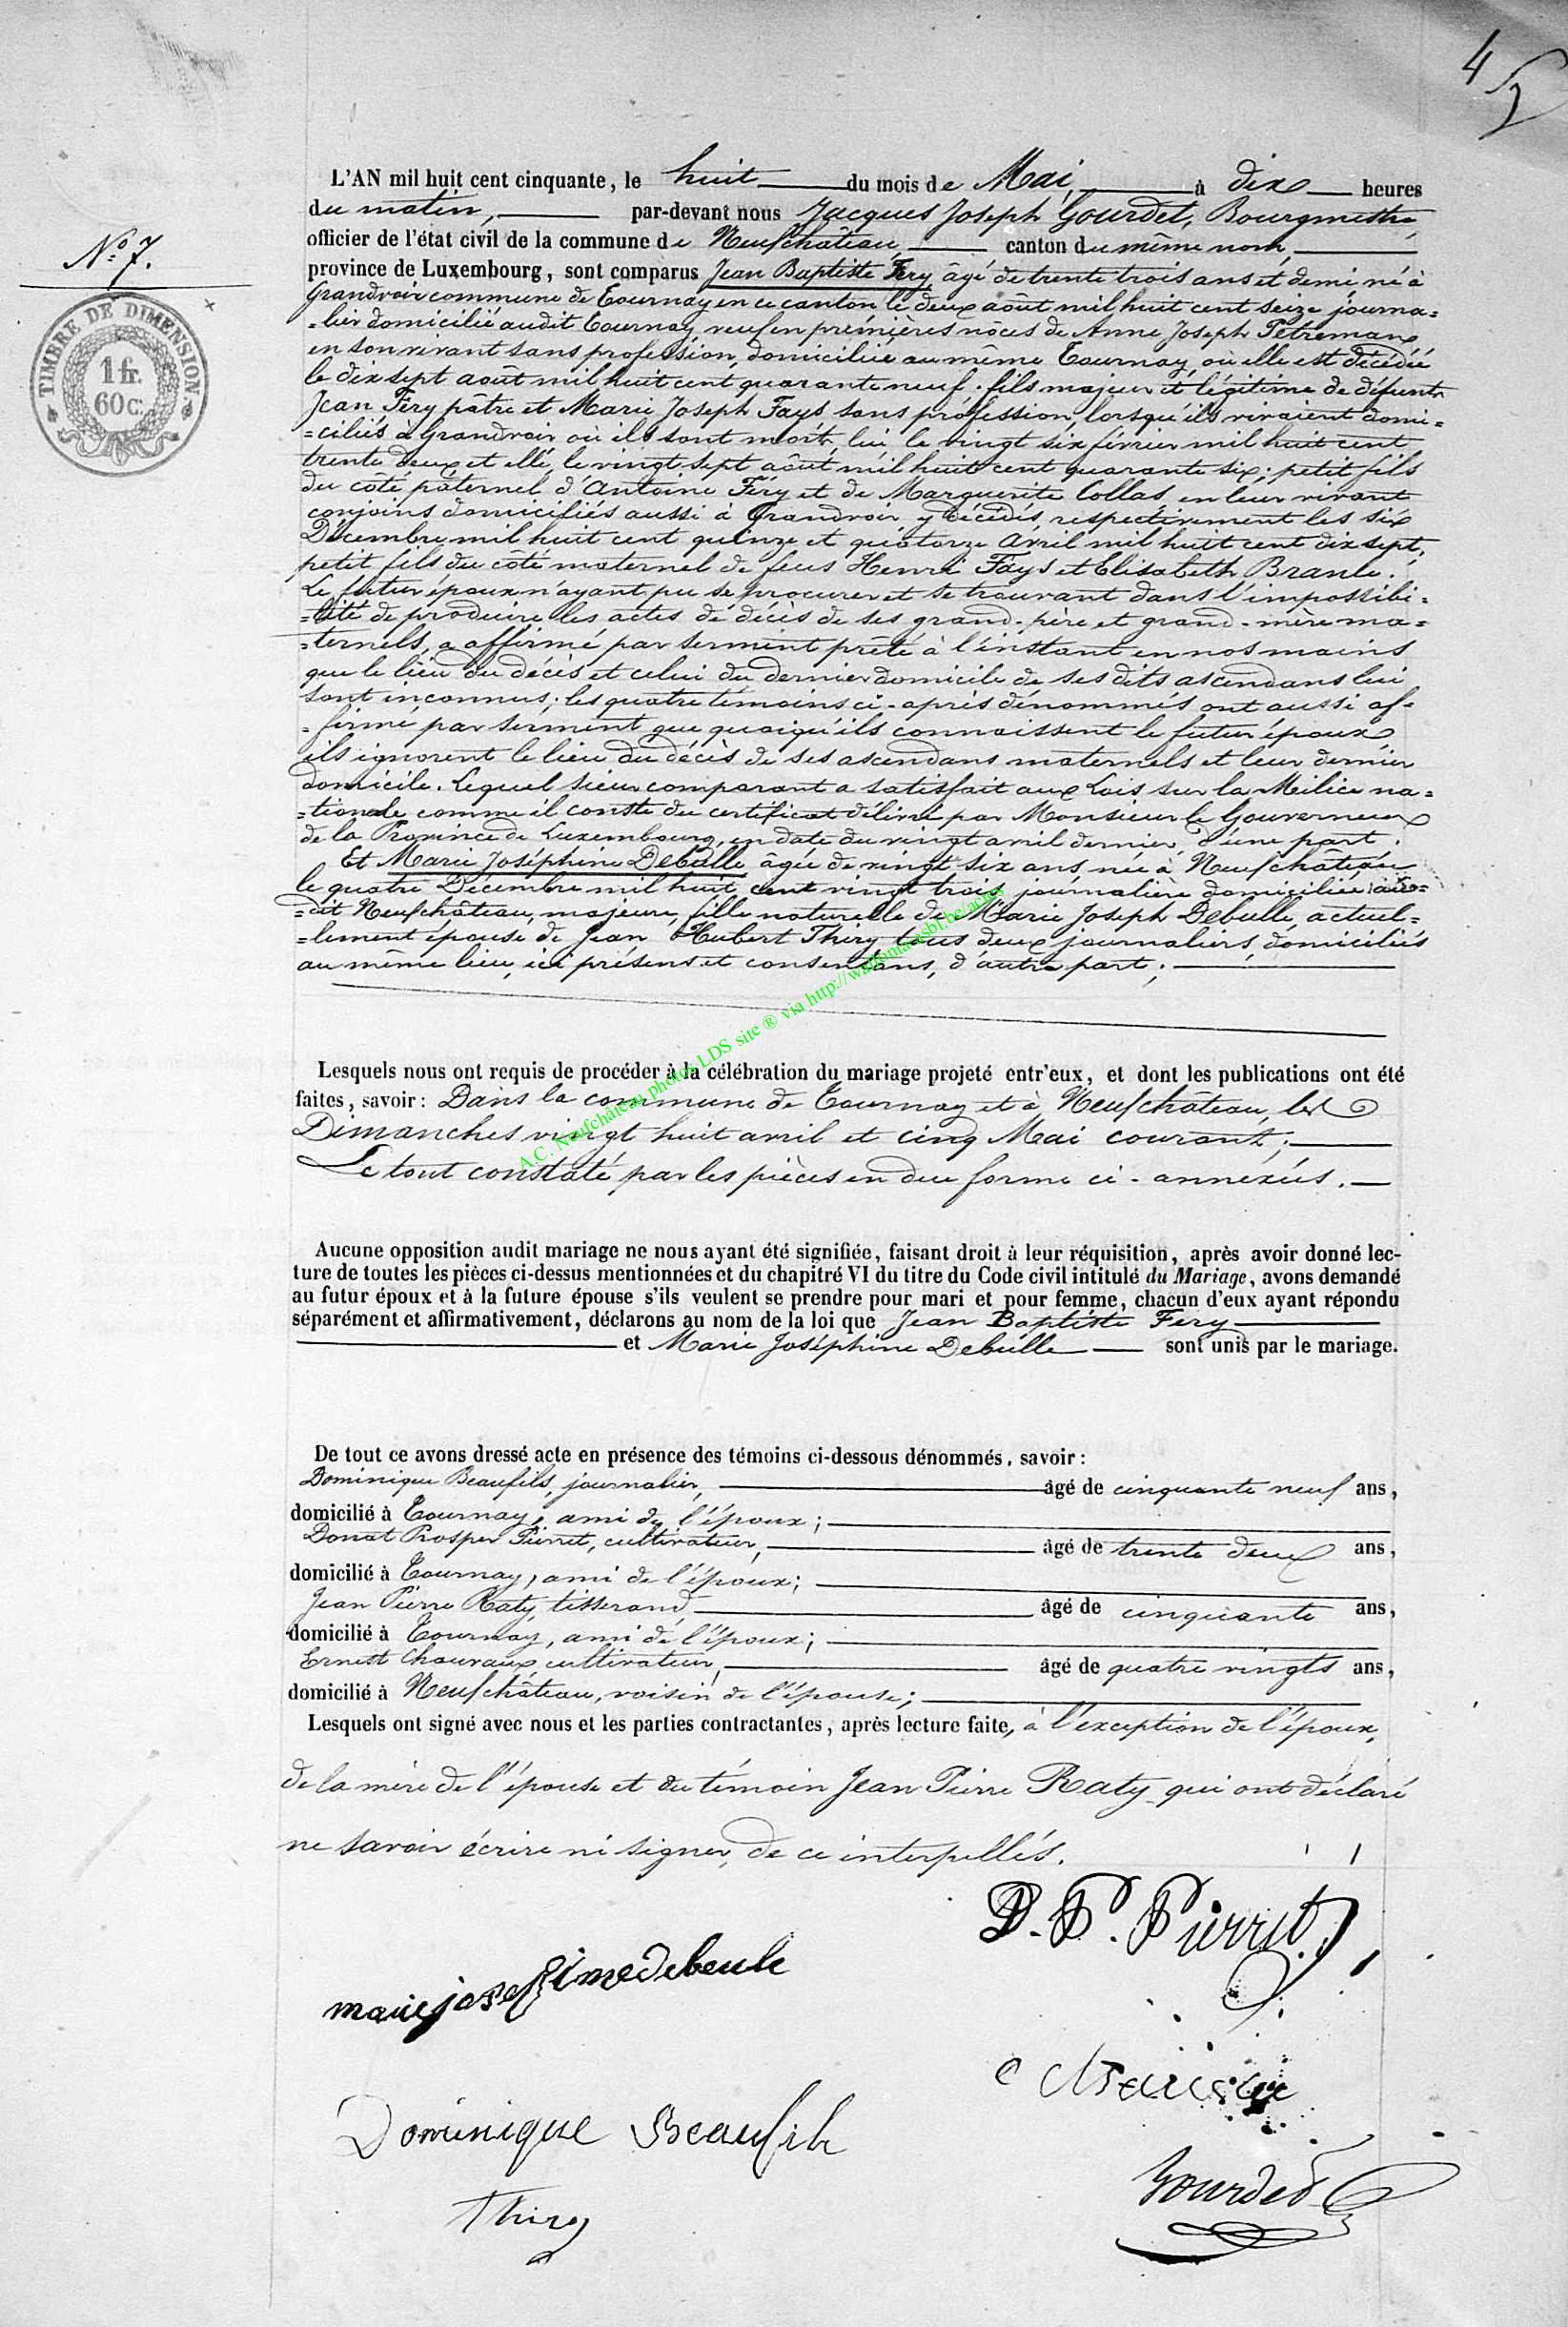 4
N.º 7.
TIMBRE DE DIMENSION
1 fr.
60 c.
L'AN mil huit cent cinquante, le huit du mois de Mai, à dix heures
du matin, par-devant nous Jacques Joseph Gourdet, Bourgmestre,
officier de l'état civil de la commune de Neufchâteau, canton du même nom,
province de Luxembourg, sont comparus Jean Baptiste Fery âgé de trente trois ans et demi, né à
Grandvoir commune de Tournay en ce canton le deux août mil huit cent seize, journa=
=lier domicilié audit Tournay, veuf en prémières nôces de Anne Joseph Petremans
en son vivant sans profession, domiciliée au même Tournay, où elle est décédée
le dix sept août mil huit cent quarante neuf; fils majeur et légitime de défunts
Jean Féry pâtre et Marie Joseph Fays sans profession, lorsqu'ils vivaient domi=
=ciliés à Grandvoir où ils sont morts, lui le vingt six février mil huit cent
trente deux et elle, le vingt sept août mil huit cent quarante six; petit fils
du côté paternel d'Antoine Féry et de Marguerite Collas, en leur vivant
conjoins domiciliés aussi à Grandvoir, y décédés, respectivement les six
Décembre mil huit cent quinze et quatorze Avril mil huit cent dix sept,
petit fils du côté maternel de feus Henri Fays et Elisabeth Branle.
Le futur époux n'ayant pu se procurer et se trouvant dans l'impossibi=
=lité de produire les actes de décès de ses grand-père et grand-mère ma=
=ternels, a affirmé par serment prêté à l'instant en nos mains
que le lieu du décès et celui du dernier domicile de ses dits ascendans lui
sont inconnus; les quatre témoins ci-après dénommés ont aussi af=
=firmé par serment que quoiqu'ils connaissent le futur époux,
ils ignorent le lieu du décès de ses ascendans maternels et leur dernier
domicile. Lequel sieur comparant a satisfait aux Lois sur la Milice na=
=tionale comme il conste du certificat délivré par Monsieur le Gouverneur
de la Province de Luxembourg, en date du vingt avril dernier, d'une part;
Et Marie Joséphine Debulle âgée de vingt six ans, née à Neufchâteau
le quatre Décembre mil huit cent vingt trois, journalière domiciliée au=
=dit Neufchâteau, majeure, fille naturelle de Marie Joseph Debulle, actuel=
=lement épouse de Jean Hubert Thiry tous deux journaliers, domiciliés
au même lieu, ici présens et consentans, d'autre part;
A.C. Neufchâteau photos LDS site ® via http://wallonia-asbl.be/actes
Lesquels nous ont requis de procéder à la célébration du mariage projeté entr'eux, et dont les publications ont été
faites, savoir: Dans la commune de Tournay et à Neufchâteau, les
Dimanches vingt huit avril et cinq Mai courant;
Le tout constaté par les pièces en due forme ci-annexées.
Aucune opposition audit mariage ne nous ayant été signifiée, faisant droit à leur réquisition, après avoir donné lec-
ture de toutes les pièces ci-dessus mentionnées et du chapitré VI du titre du Code civil intitulé du Mariage, avons demandé
au futur époux et à la future épouse s'ils veulent se prendre pour mari et pour femme, chacun d'eux ayant répondu
séparément et affirmativement, déclarons au nom de la loi que Jean Baptiste Fery
et Marie Joséphine Debulle sont unis par le mariage.
De tout ce avons dressé acte en présence des témoins ci-dessous dénommés, savoir:
Dominique Beaufils, journalier, âgé de cinquante neuf ans,
domicilié à Tournay, ami de l'époux;
Donat Prosper Pierret, cultivateur, âgé de trente deux ans,
domicilié à Tournay, ami de l'époux;
Jean Pierre Raty, tisserand, âgé de cinquante ans,
domicilié à Tournay, ami de l'époux;
Ernest Chauvaux cultivateur, âgé de quatre vingts ans,
domicilié à Neufchâteau, voisin de l'épouse;
Lesquels ont signé avec nous et les parties contractantes, après lecture faite, à l'exception de l'époux,
de la mère de l'épouse et du témoin Jean Pierre Raty qui ont déclaré
ne savoir écrire ni signer, de ce interpellés.
D. P. Pierret
marie josefime debeule
Dominique Beaufils
Gourdet
Thiry